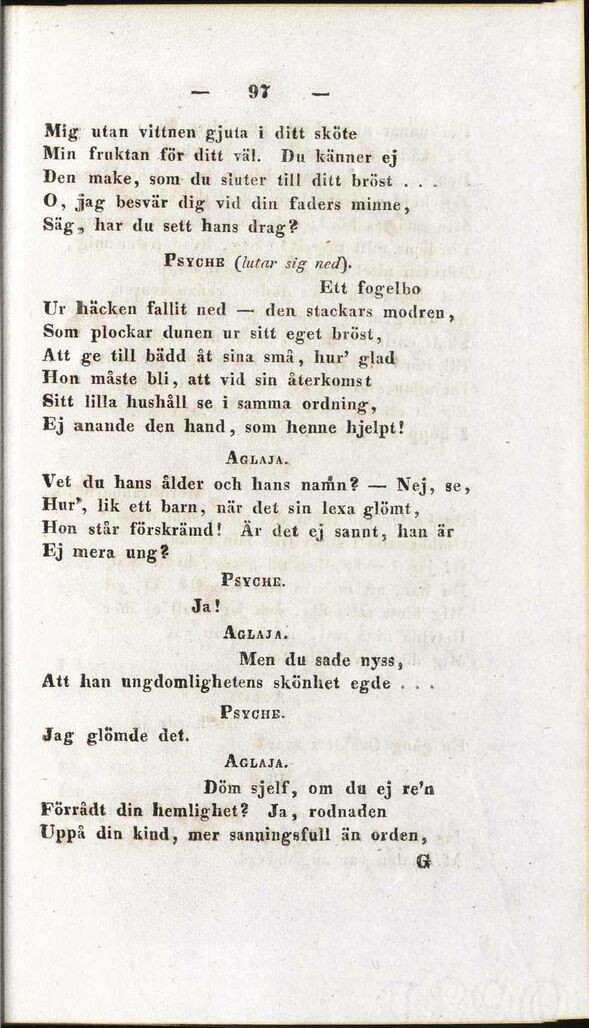 — 97 —
Mig utan vittnen gjuta i ditt sköte
Min fruktan för ditt väl. Du känner ej
Den make, som du sluter till ditt bröst . . .
O, jag besvär dig vid din faders minne,
Säg, har du sett hans drag?
PSYCHE (lutar sig ned).
Ett fogelbo
Ur häcken fallit ned — den stackars modren,
Som plockar dunen ur sitt eget bröst,
Att ge till bädd åt sina små, hur' glad
Hon måste bli, att vid sin återkomst
Sitt lilla hushåll se i samma ordning,
Ej anande den hand, som henne hjelpt!
AGLAJA.
Vet du hans ålder och hans namn? — Nej, se,
Hur', lik ett barn, när det sin lexa glömt,
Hon står förskrämd! Är det ej sannt, han är
Ej mera ung?
PSYCHE.
Ja!
AGLAJA.
Men du sade nyss,
Att han ungdomlighetens skönhet egde . . .
PSYCHE.
Jag glömde det.
AGLAJA.
Döm sjelf, om du ej re'n
Förrådt din hemlighet? Ja, rodnaden
Uppå din kind, mer sanningsfull än orden,
G